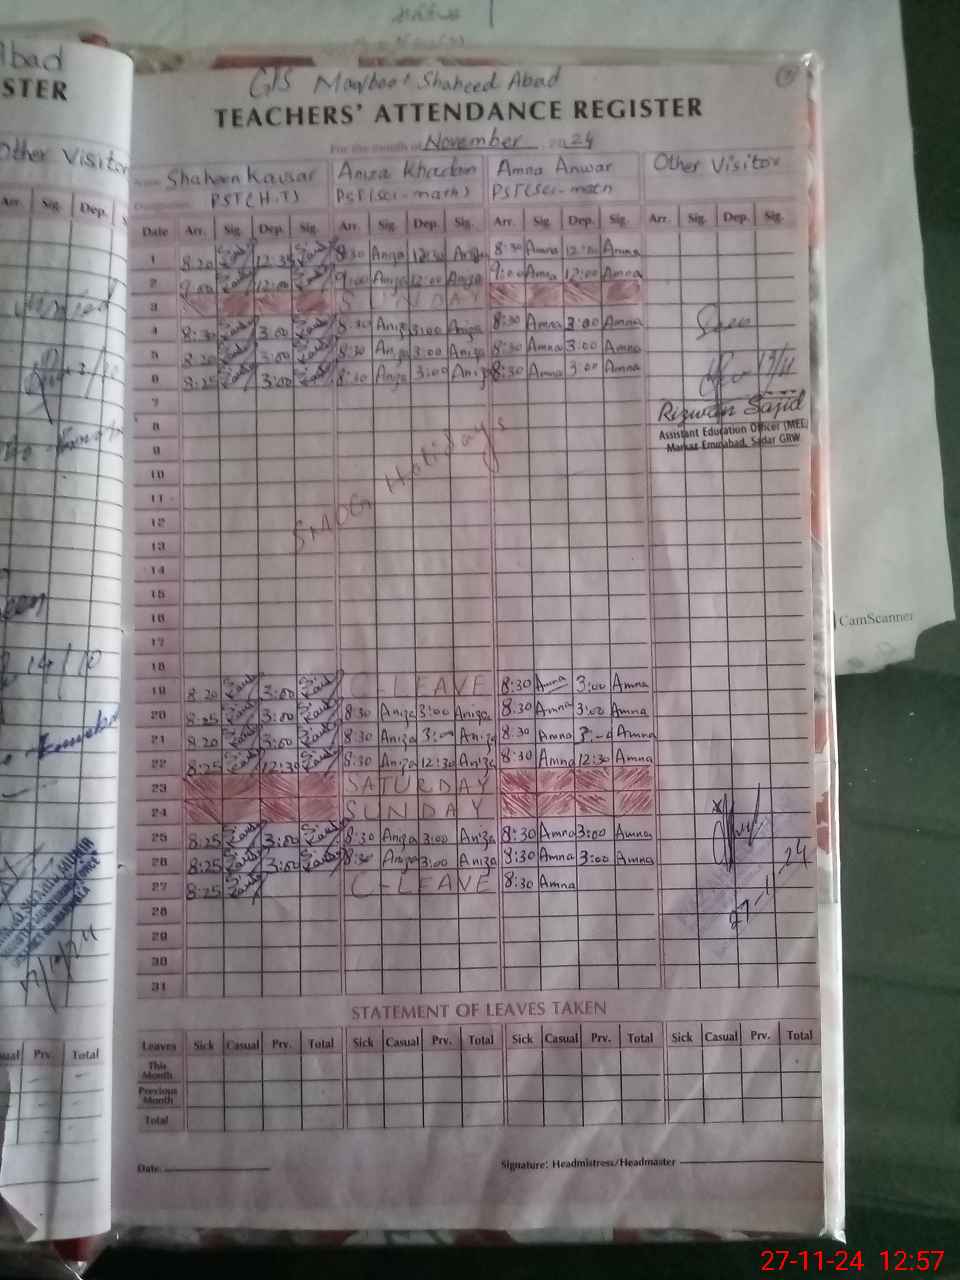 Abad
STER
Other Visitor
Arr. Sig. Dep. S
GIS Maqbool Shaheed Abad
TEACHERS' ATTENDANCE REGISTER
For the month of November 2024
Name Shaheen Kausar Aniza Khadam Amna Anwar Other Visitor
PST (H.T) PST (Sci-math) PST (Sci-math
Date Arr. Sig. Dep. Sig. Arr. Sig. Dep. Sig. Arr. Sig. Dep. Sig. Arr. Sig. Dep. Sig.
1 8:20 12:35 8:30 Aniza 12:30 Aniza 8:30 Amna Amna
2 9:00 12:00 9:00 Aniza 12:00 Aniza 9:00 Amna 12:00 Amna
3 SUNDAY
4 8:30 3:00 8:30 Aniza 3:00 Aniza 8:30 Amna 3:00 Amna
5 8:20 3:00 8:30 Aniza 3:00 Aniza 8:30 Amna 3:00 Amna
6 8:25 3:00 8:30 Aniza 3:00 Aniza 8:30 Amna 3:00 Amna
13/11
7
Rizwan Sajid
8
Assistant Education Officer (MEE
9
Markaz Eminabad, Sadar GRW
10
11
SMOG Holidays
12
13
14
15
16
17
18
19 8:20 3:00 C-LEAVE 8:30 Amna 3:00 Amna
20 8:25 3:00 8:30 Aniza 3:00 Aniza 8:30 Amna 3:00 Amna
21 8:20 3:00 8:30 Aniza 3:00 Aniza 8:30 Amna Amna
22 8:25 12:30 8:30 Aniza 12:30 Aniza 8:30 Amna 12:30 Amna
23 SATURDAY
24 SUNDAY
25 8:25 3:00 8:30 Aniza 3:00 Aniza 8:30 Amna 3:00 Amna
26 8:25 3:00 8:30 Aniza 3:00 Aniza 8:30 Amna 3:00 Amna
27 8:25 C-LEAVE 8:30 Amna
27-11-24
28
29
30
31
STATEMENT OF LEAVES TAKEN
Leaves Sick Casual Prv. Total Sick Casual Prv. Total Sick Casual Prv. Total Sick Casual Prv. Total
This Month
Previous Month
Total
Date:
Signature: Headmistress/Headmaster
ual Prv. Total
14/10
CamScanner
27-11-24 12:57